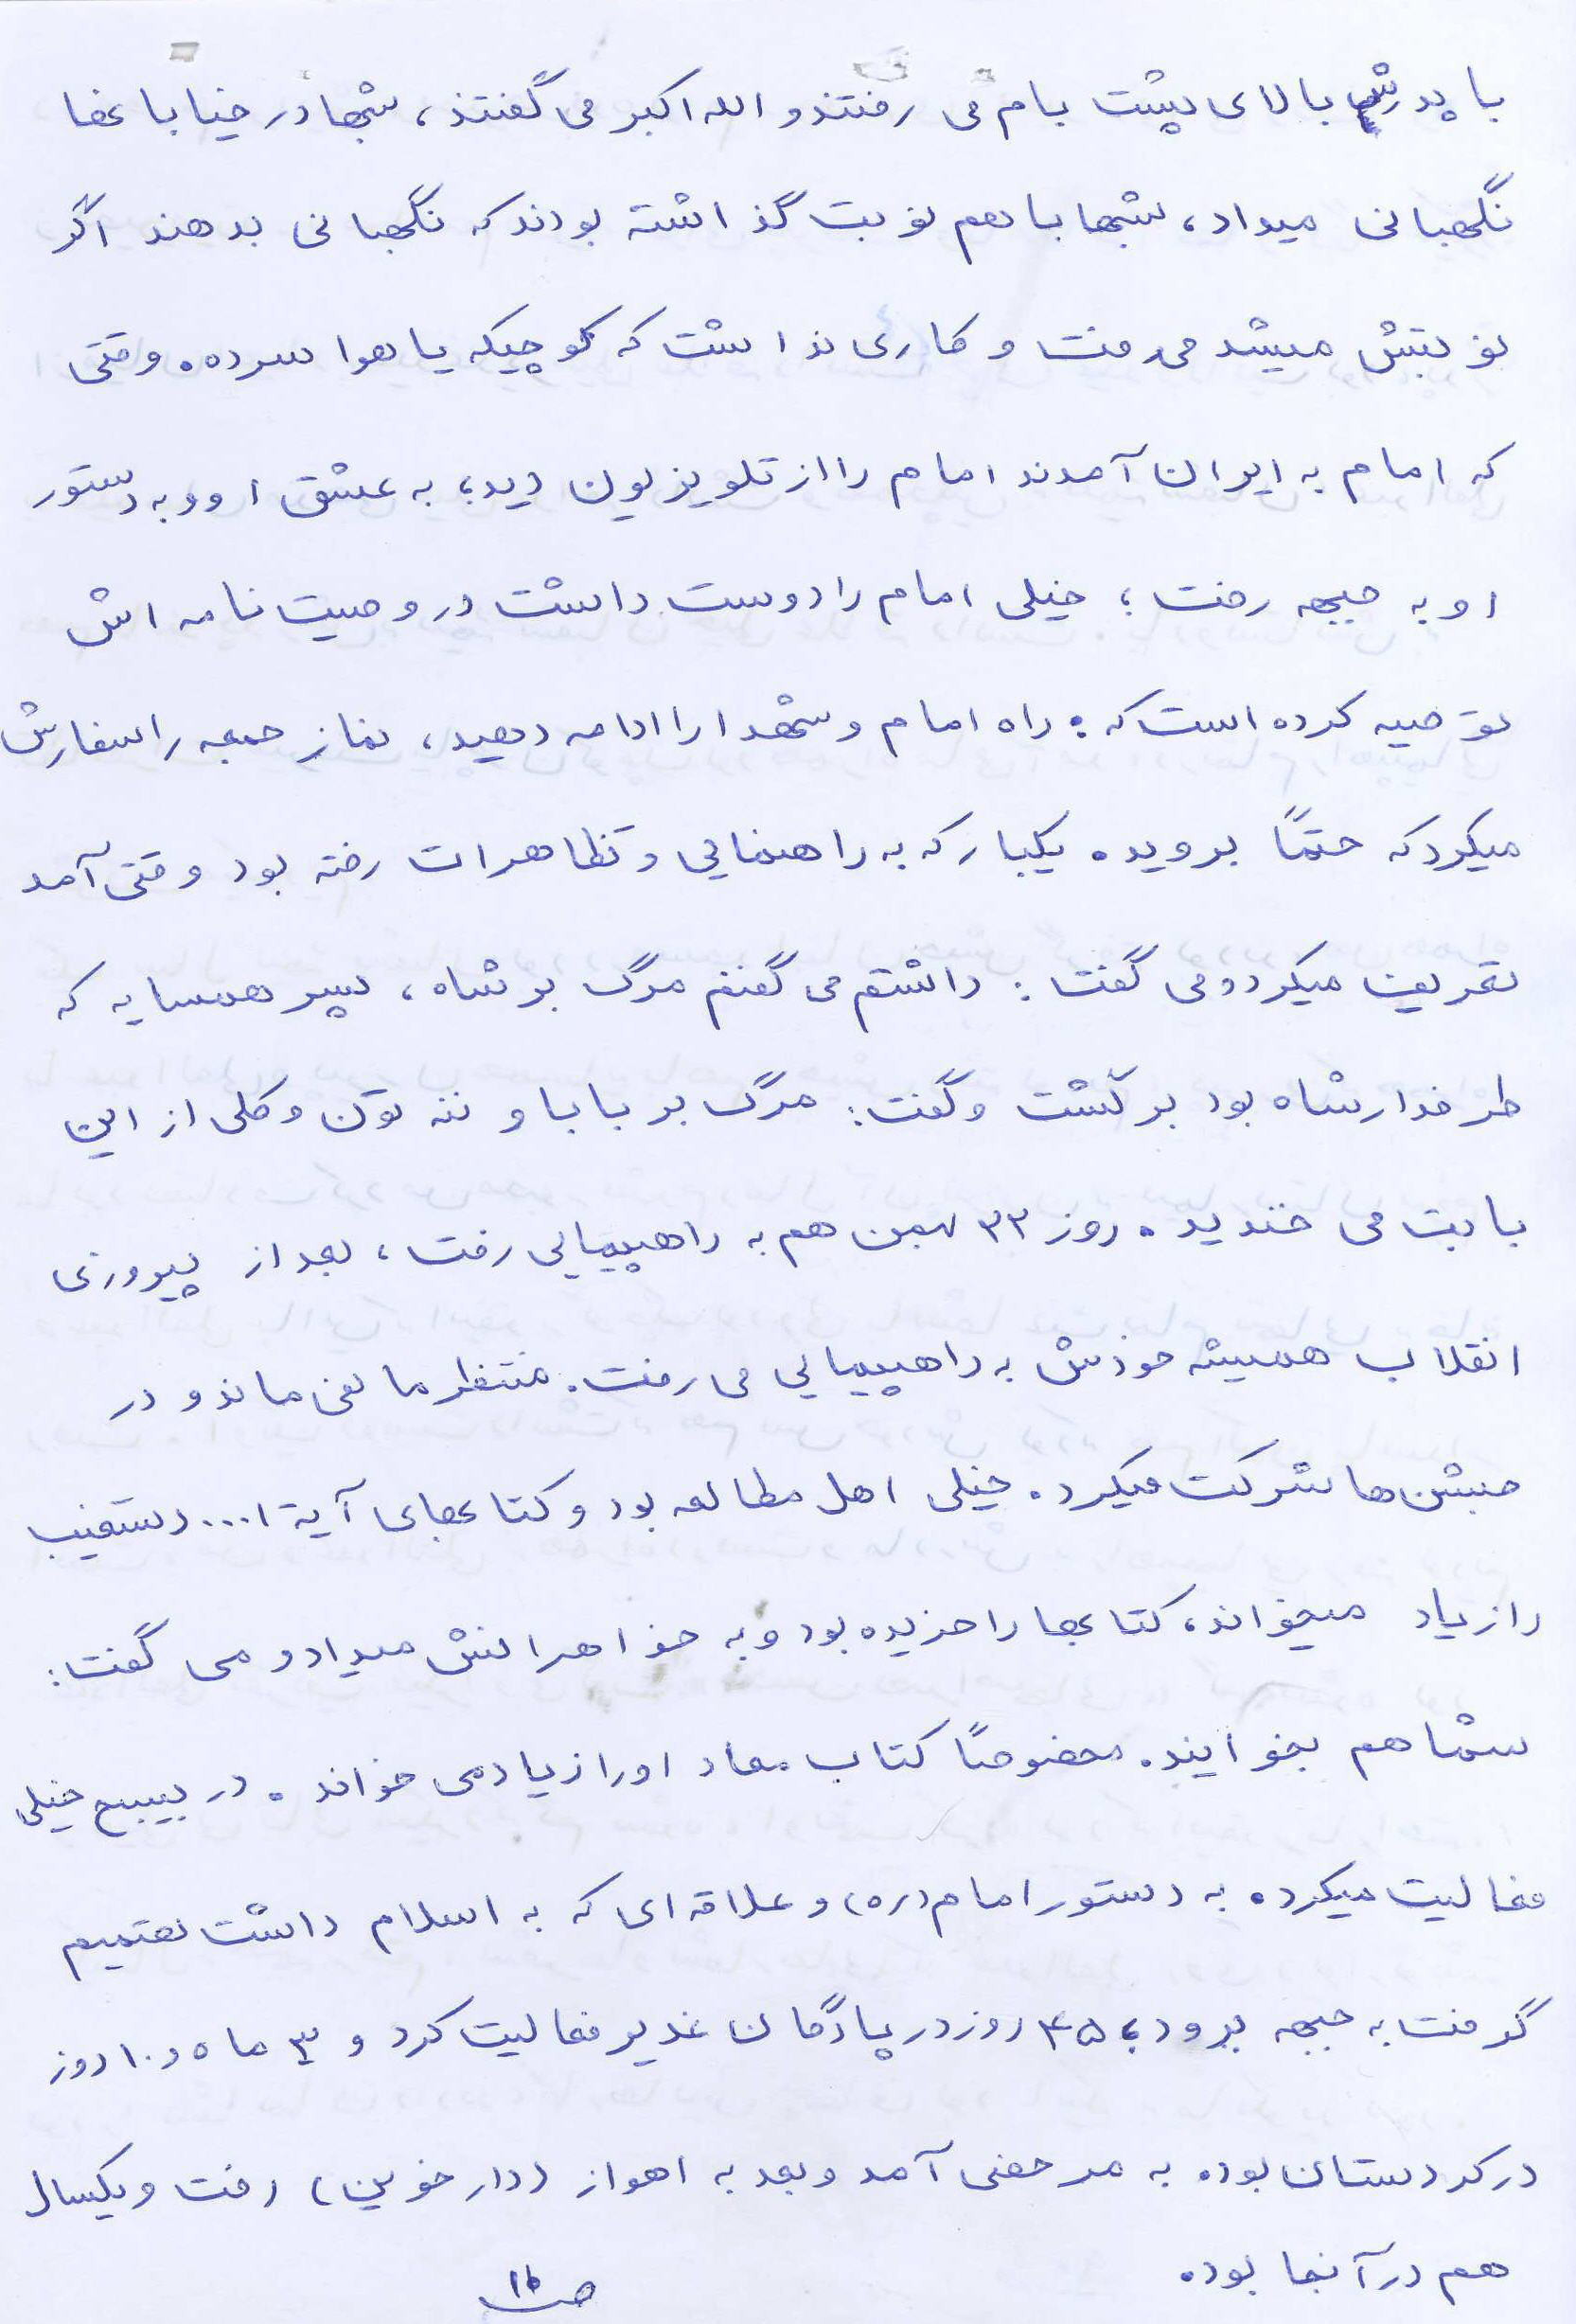 با پدرش بالای پشت بام می رفتند و الله اکبر می گفتند، شبها در خیابانها
نگهبانی میداد، شبها با هم نوبت گذاشته بودند که نگهبانی بدهند اگر
نوبتش میشد می رفت و کاری نداشت که کوچیکه یا هوا سرده. وقتی
که امام به ایران آمدند امام را از تلویزیون دید؛ به عشق او و به دستور
او به جبهه رفت؛ خیلی امام را دوست داشت در وصیت نامه اش
توصیه کرده است که: راه امام و شهدا را ادامه دهید، نماز جمعه را سفارش
میکرد که حتماً بروید. یکبار که به راهنمایی و تظاهرات رفته بود وقتی آمد
تعریف میکرد و می گفت: داشتم می گفتم مرگ بر شاه، پسر همسایه که
طرفدار شاه بود برگشت و گفت: مرگ بر بابا و ننه تون و کلی از این
بابت می خندید. روز ۲۲ بهمن هم به راهپیمایی رفت، بعد از پیروزی
انقلاب همیشه خودش به راهپیمایی می رفت. منتظر ما نمی ماند و در
جشن ها شرکت میکرد. خیلی اهل مطالعه بود و کتابهای آیة ا... دستغیب
را زیاد میخواند، کتابها را خریده بود و به خواهرانش میداد و می گفت:
شما هم بخوانید. مخصوصاً کتاب معاد او را زیاد می خواند. در بسیج خیلی
فعالیت میکرد. به دستور امام (ره) و علاقه ای که به اسلام داشت تصمیم
گرفت به جبهه برود، ۴۵ روز در پادگان غدیر فعالیت کرد و ۳ ماه و ۱۰ روز
در کردستان بود. به مرخصی آمد و بعد به اهواز (دارخوین) رفت و یکسال
هم در آنجا بود.